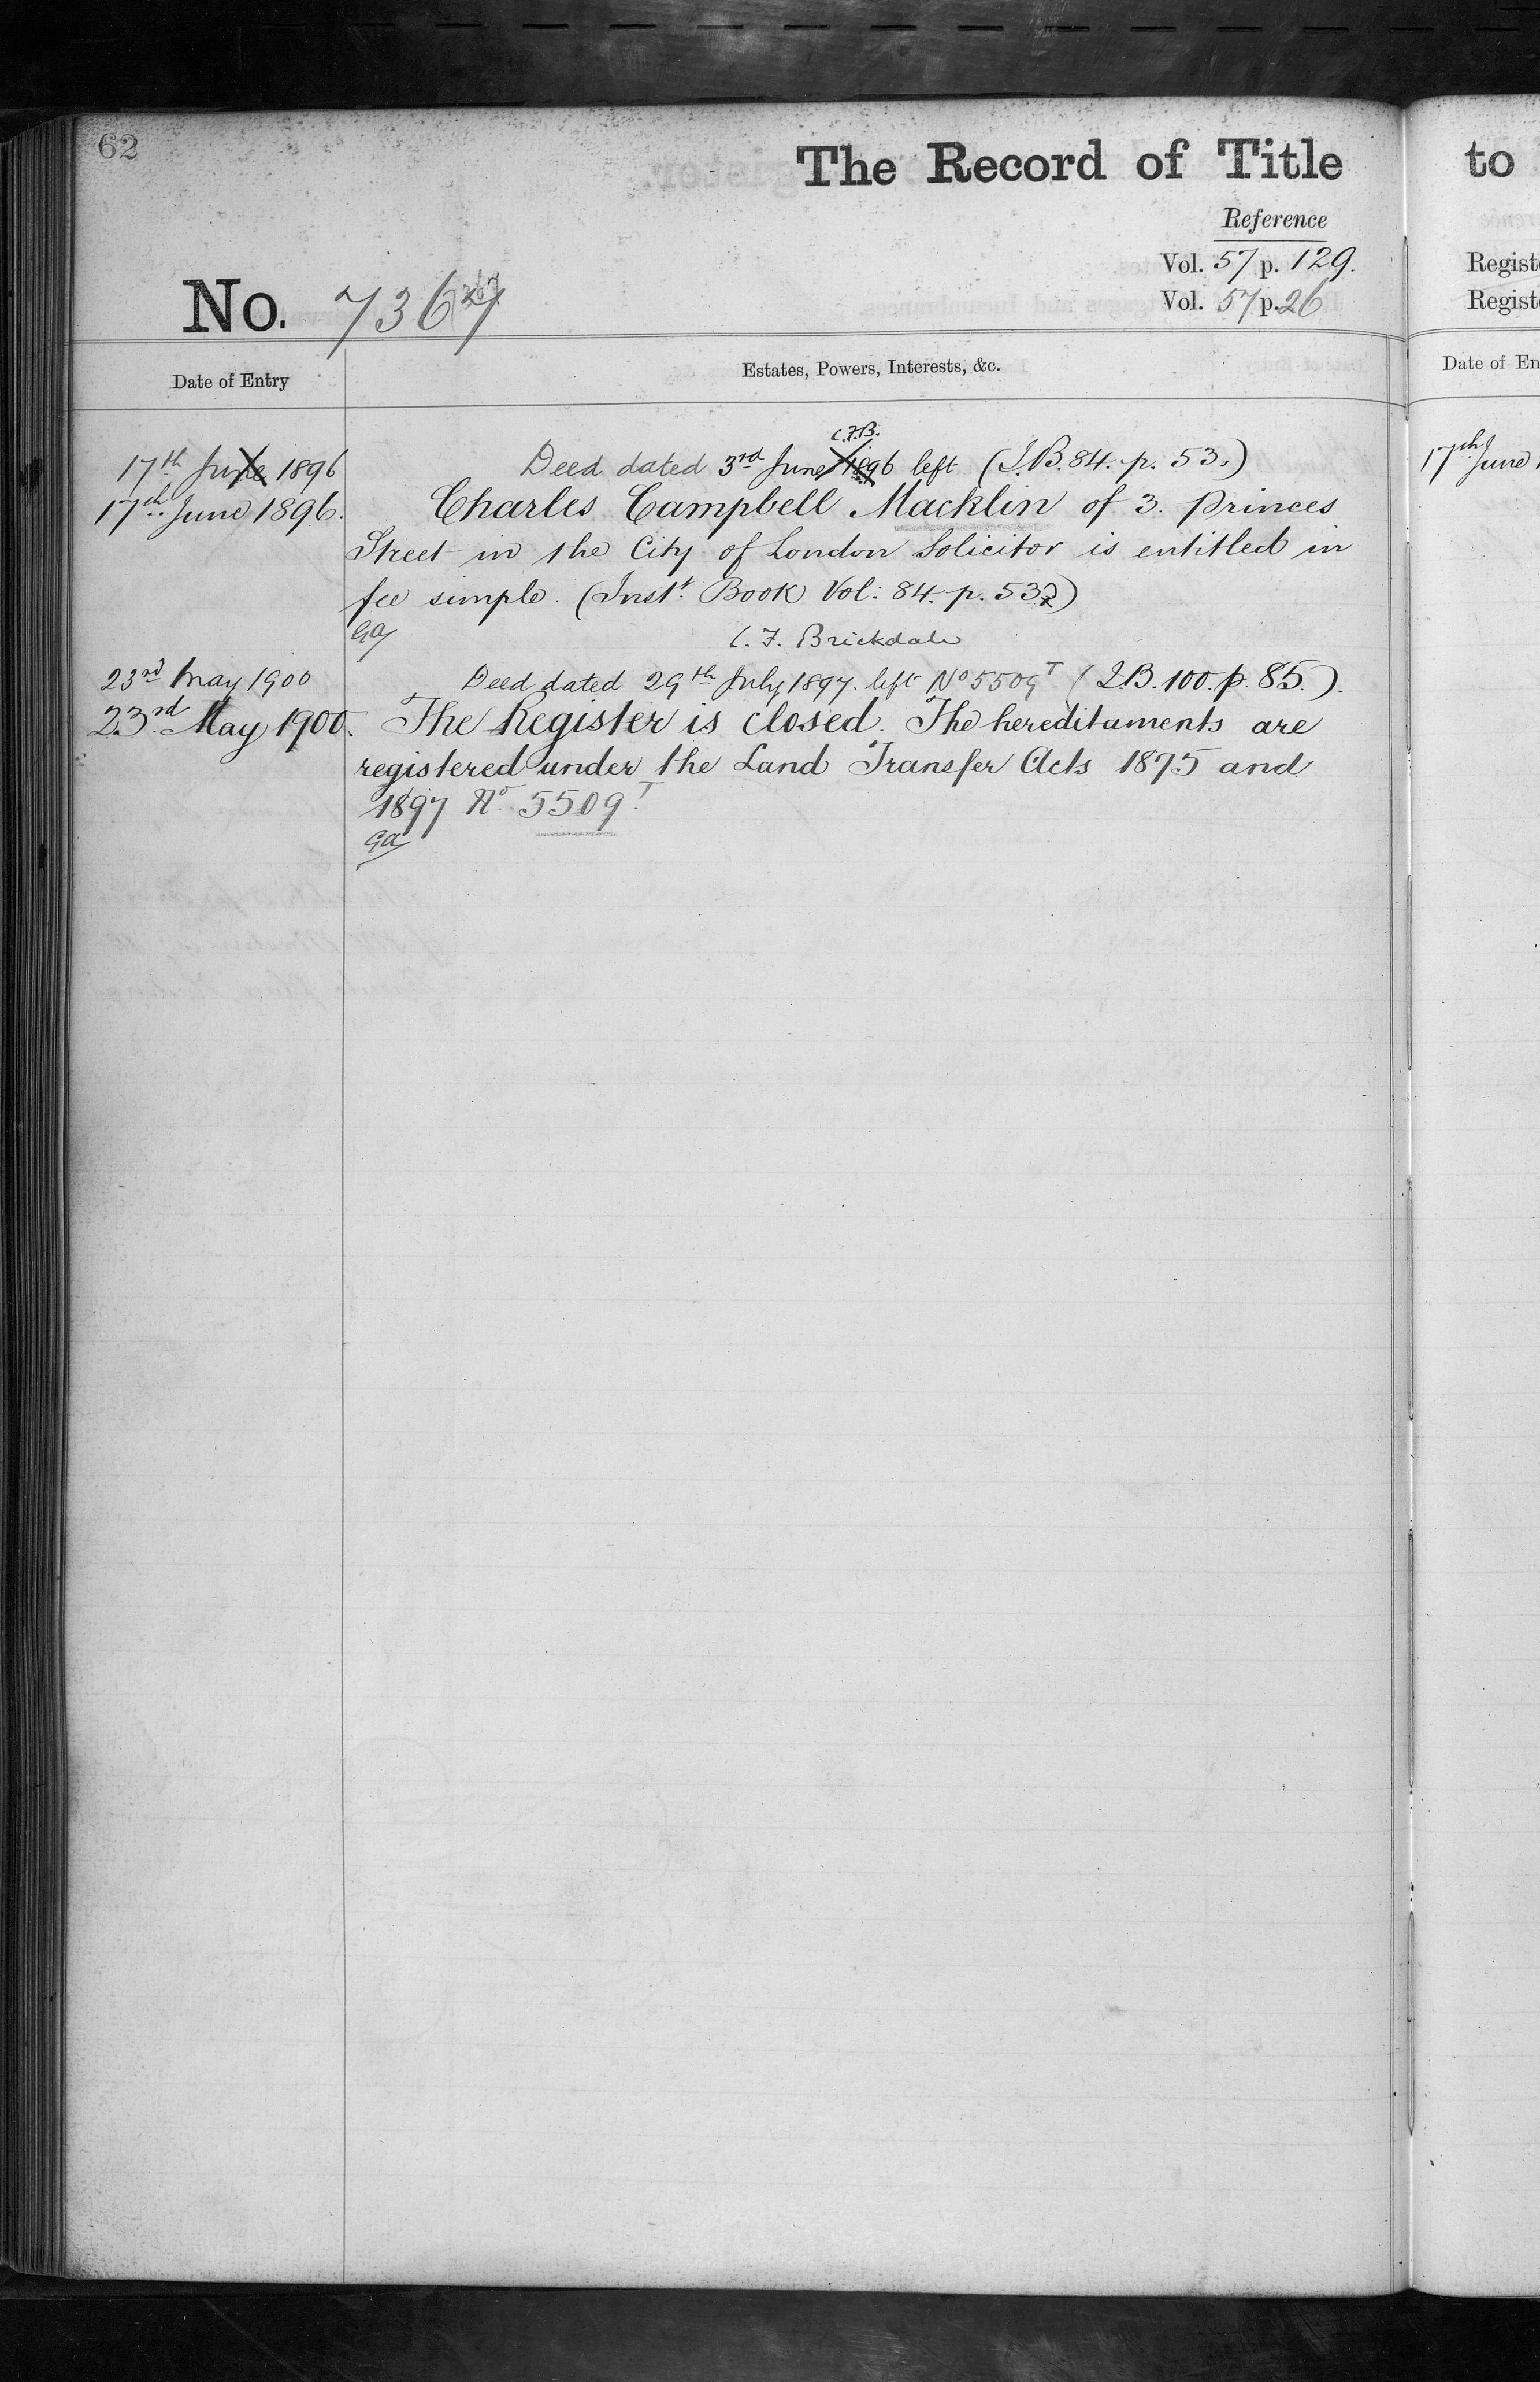 62
The Record of Title
to
Reference
Vol. 57 p. 129.
Vol. 57 p. 26
Regist
Regist
No. 7367
Date of Entry
Estates, Powers, Interests, &c.
Date of En
C.F.B.
17th June 1896 Deed dated 3rd June 1896 left (I.B. 84. p. 53.)
17th June 1896. Charles Campbell Macklin of 3. Princes
Street in the City of London Solicitor is entitled in
fee simple. (Inst.t Book Vol: 84. p. 53)
GA
C. F. Brickdale
23rd May 1900 Deed dated 29th July 1897. left No 5509T (I.B. 100. p. 85.).
23rd May 1900. The Register is closed. The hereditaments are
registered under the Land Transfer Acts 1875 and
1897 No. 5509T
GA
17th June